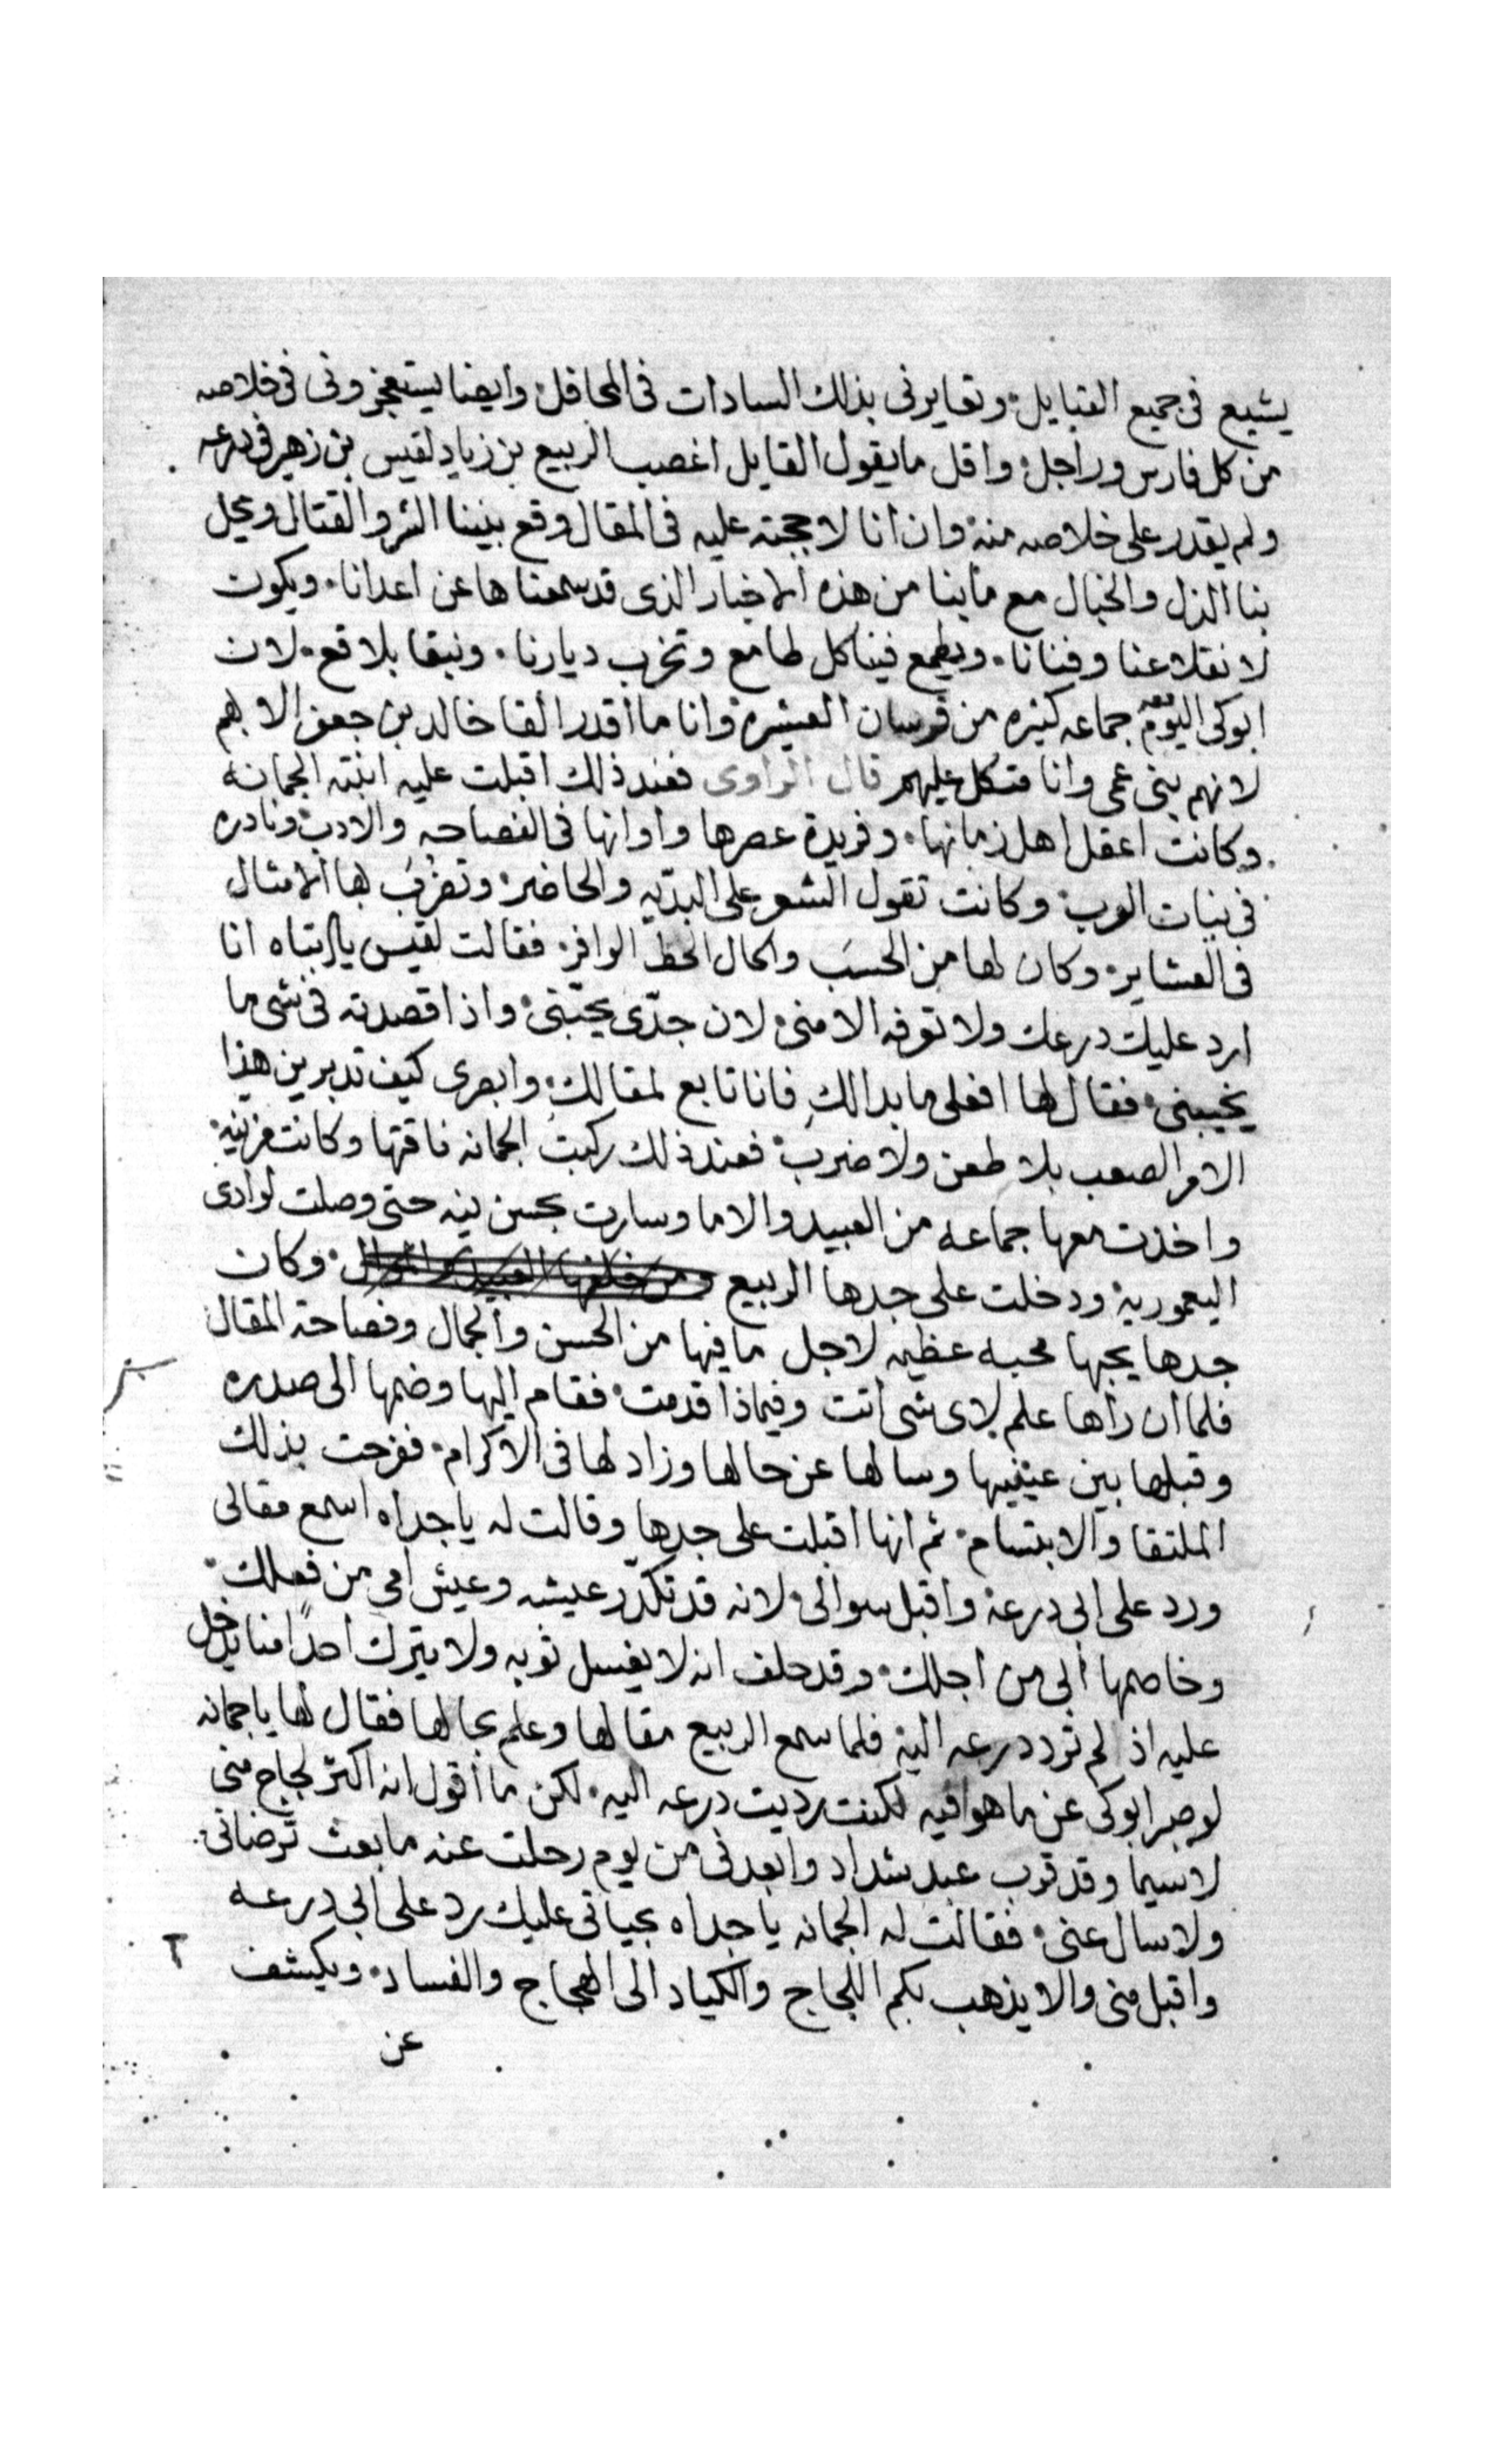 يشيع فى جميع القبايل وتعايرنى بذلك السادات فى المحافل وايضا يستعجزونى فى خلاصه
من كل فارس وراجل واقل ما يقول القايل اغصب الربيع بن زياد لقيس بن زهير فى درعه
ولم يقدر على خلاصه منه وان انا لاججته عليه فى المقال وقع بيننا الشر والقتال ويحل
بنا الذل والخبال مع ما بنا من هذه الاخبار الذى قد سمعناها عن اعدانا ويكون
لانقلاعنا وفنانا ويطمع فينا كل طامع وتخرب ديارنا ونبقا بلاقع لان
ابوكى اليوم معه جماعه كثيره من فرسان العشيره وانا ما اقدر القا خالد بن جعفر الا بهم
لانهم بنى عمى وانا متكل عليهم قال الراوى فعند ذلك اقبلت عليه ابنته الجمانه
وكانت اعقل اهل زمانها وفريدة عصرها واوانها فى الفصاحه والادب ونادره
فى بنات العرب وكانت تقول الشعر على البديه والحاضر وتضرب بها الامثال
فى العشاير وكان لها من الحسب والجمال الحظ الوافر فقالت لقيس يا ابتاه انا
ارد عليك درعك ولا توفه الا منى لان جدّى يحبّنى واذا قصدته فى شى ما
يخيبنى فقال لها افعلى ما بدالكِ فانا تابع لمقالك وابصرى كيف تدبرين هذا
الامر الصعب بلا طعن ولا ضرب فعند ذلك ركبت الجمانه ناقتها وكانت مزينه
واخذت معها جماعه من العبيد والاما وسارت بحسن نيه حتى وصلت لوادى
اليعموريه ودخلت على جدها الربيع وكان
جدها يحبها محبه عظيمه لاجل ما فيها من الحسن والجمال وفصاحة المقال
فلما ان راها علم لاى شى اتت وفيماذا قدمت فقام اليها وضمها الى صدره
وقبلها بين عينيها وسالها عن حالها وزاد لها فى الاكرام ففرحت بذلك
الملتقا والابتسام ثم انها اقبلت على جدها وقالت له يا جداه اسمع مقالى
ورد على ابى درعه واقبل سوالى لانه قد تكدّر عيشه وعيش امى من فعلك
وخاصمها ابى من اجلك وقد حلف انه لا يغسل ثوبه ولا يترك احدًا منا يدخل
عليه اذ لم ترد درعه اليه فلما سمع الربيع مقالها وعلم بحالها فقال لها يا جمانه
لو صبر ابوكى عن ما هو فيه لكنت رديت درعه اليه لكن ما اقول انه اكثر لجاج منى
لاسيما وقد قرب عبد شداد وابعدنى من يوم رحلت عنه ما بعث ترضانى
ولا سال عنى فقالت له الجمانه يا جداه بحياتى عليك رد على ابى درعه
واقبل منى والا يذهب بكم اللجاج والكياد الى الهجاج والفساد ويكشف
عن